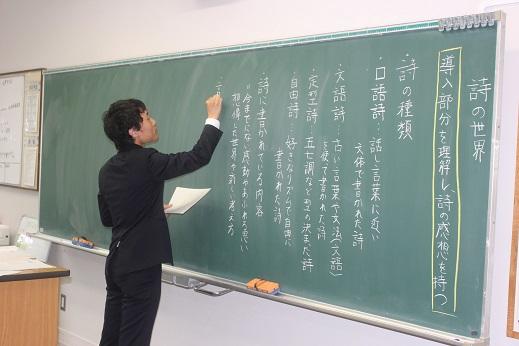 詩の世界
導入部分を理解し、詩の感想を持つ
・詩の種類
・口語詩…話し言葉に近い
文体で書かれた詩
・文語詩…古い言葉や文法(文語)
を使って書かれた詩
・定型詩…五七調など型の決まった詩
・自由詩…好きなリズムで自由に
書かれた詩
・詩に書かれている内容
"今までにない感動やあふれる思い
想像した世界や新しい考え方